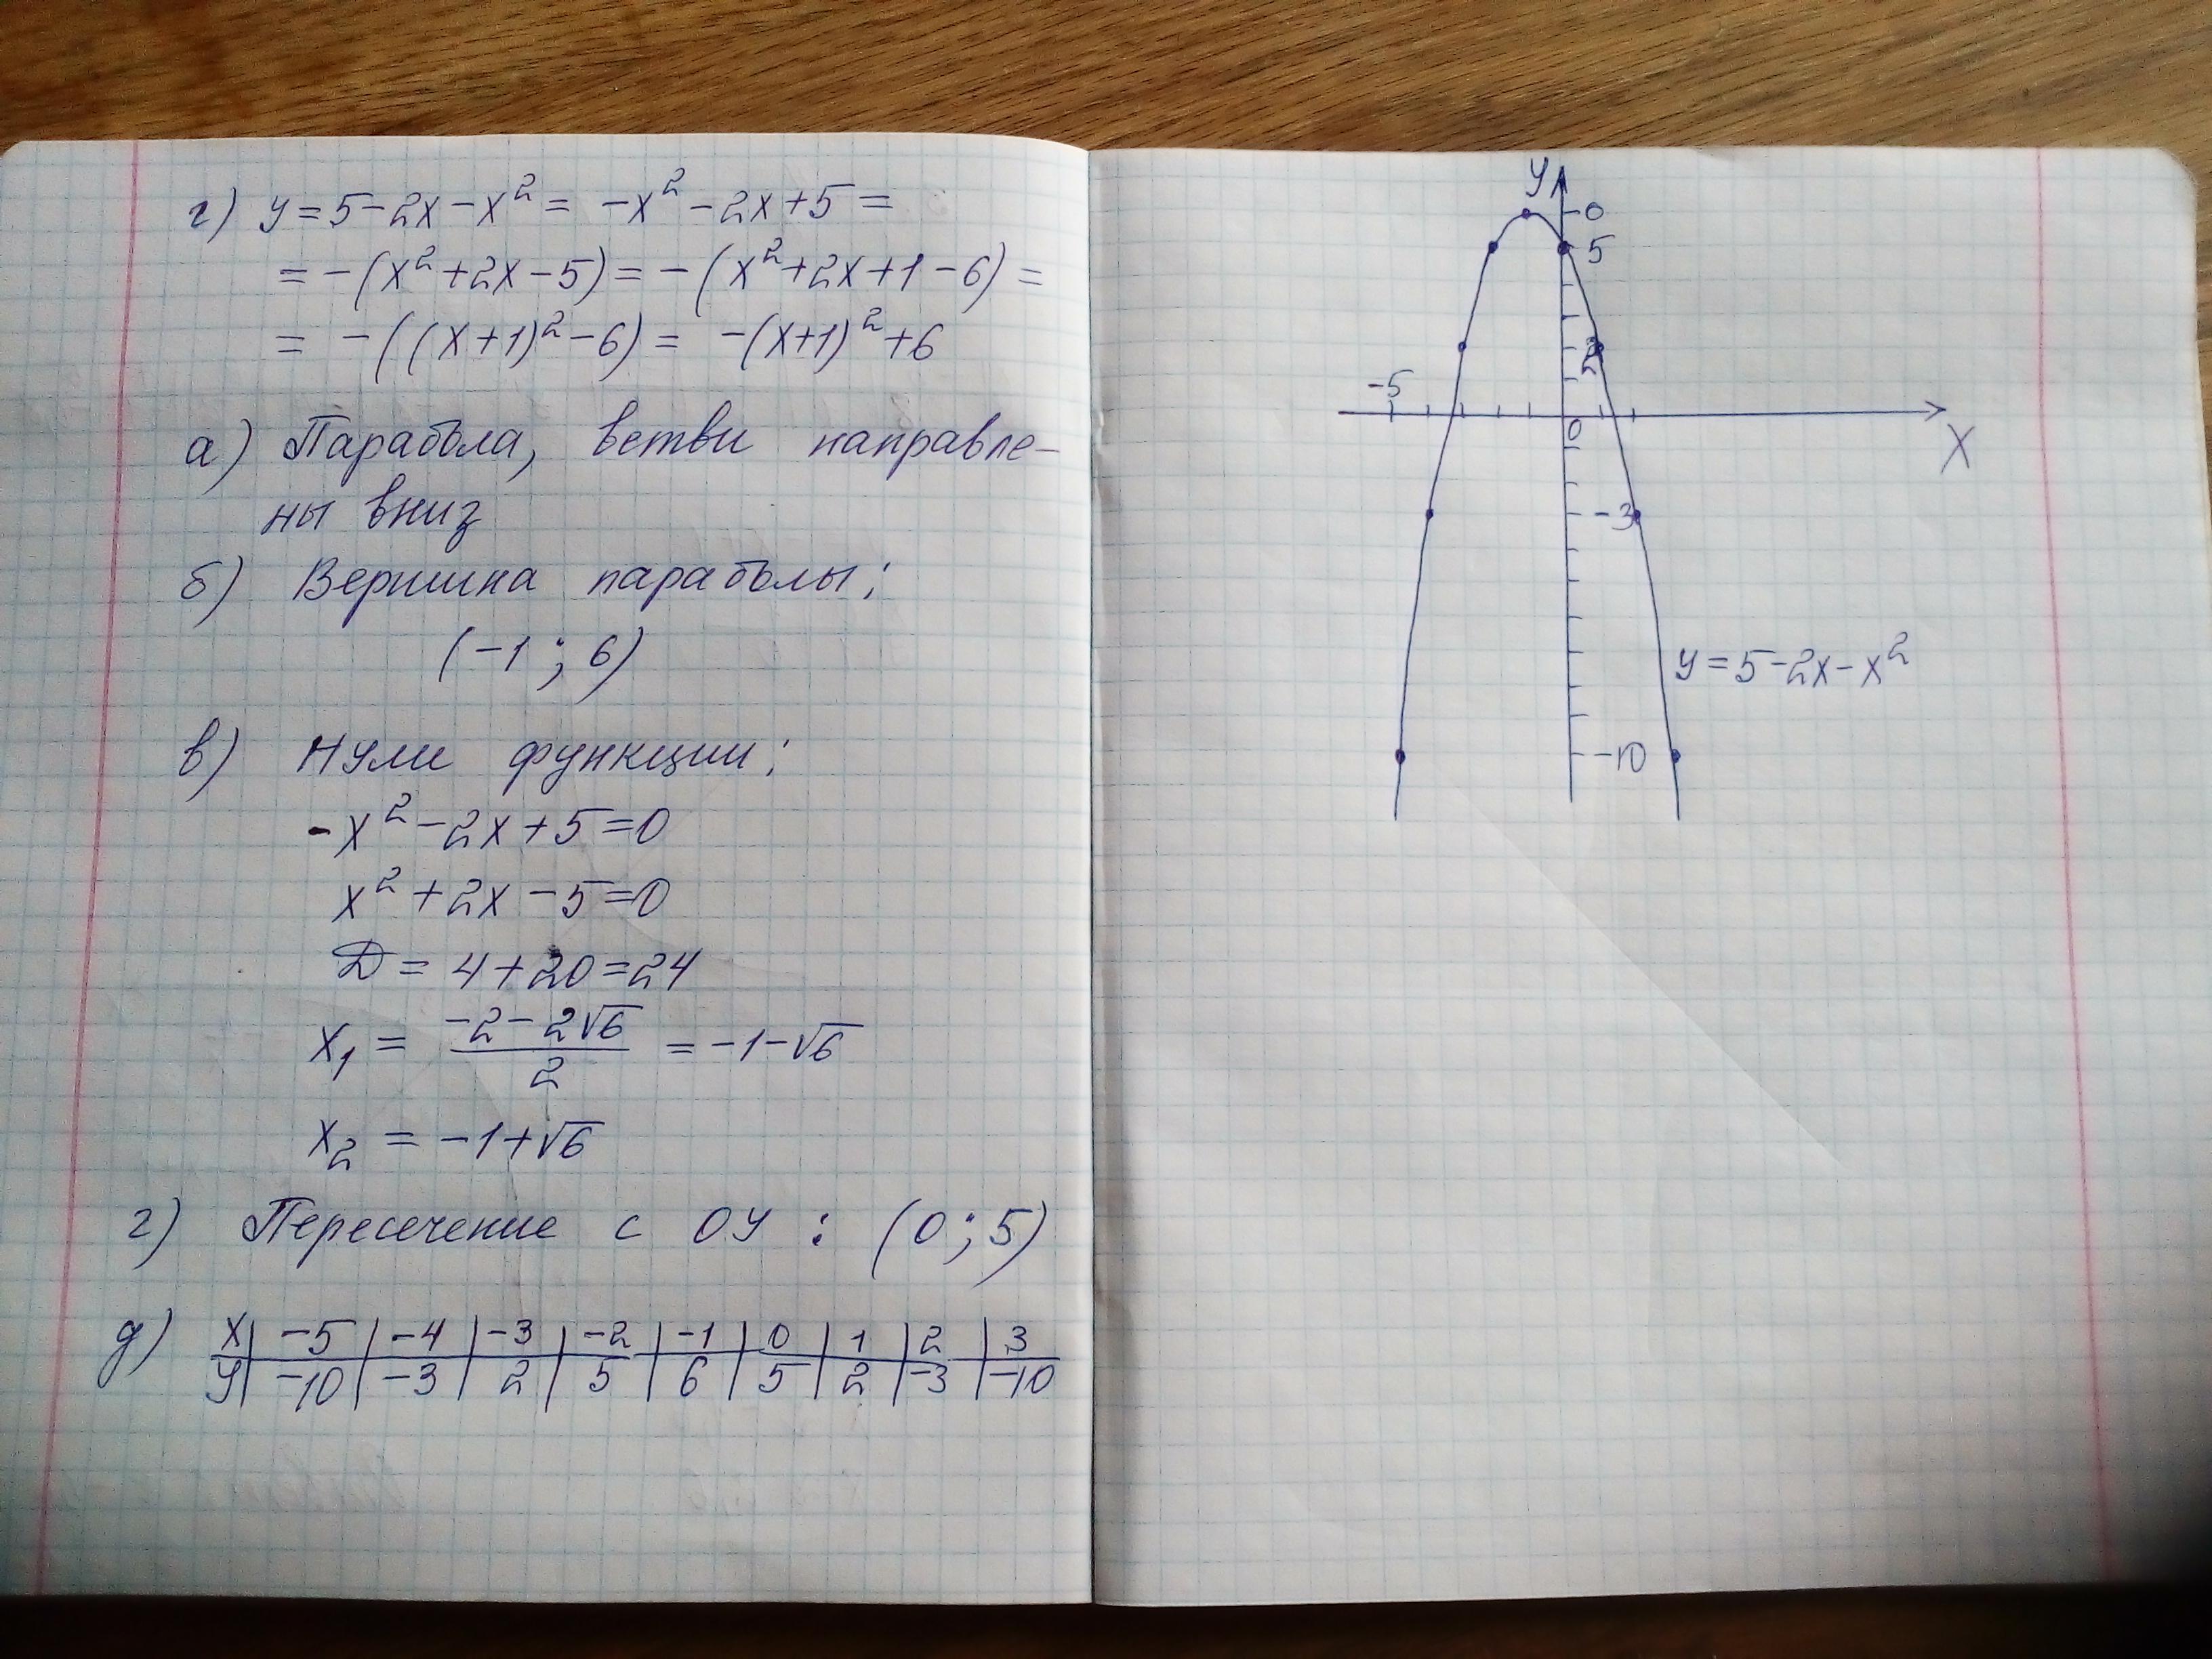 г) y=5-2x-x²= -x²-2x+5=
=-(x²+2x-5)=-(x²+2x+1-6)=
= -((x+1)²-6)= -(x+1)²+6
а) Парабола, ветви направле-
ны вниз
б) Вершина параболы:
(-1; 6)
в) Нули функции:
-x²-2x+5=0
x²+2x-5=0
D=4+20=24
x₁ = (-2-2√6)/2 = -1-√6
x₂ = -1+√6
г) Пересечение с ОУ : (0; 5)
д) x | -5 | -4 | -3 | -2 | -1 | 0 | 1 | 2 | 3
y | -10 | -3 | 2 | 5 | 6 | 5 | 2 | -3 | -10
y
0
5
2
-5
0
x
-3
y=5-2x-x²
-10